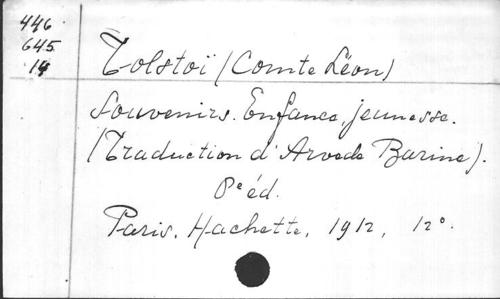 446
645
14
Tolstoï (Comte Léon)
Souvenirs. Enfance, jeunesse.
(Traduction d'Arvede Barine).
8e éd.
Paris. Hachette, 1912, 12°.